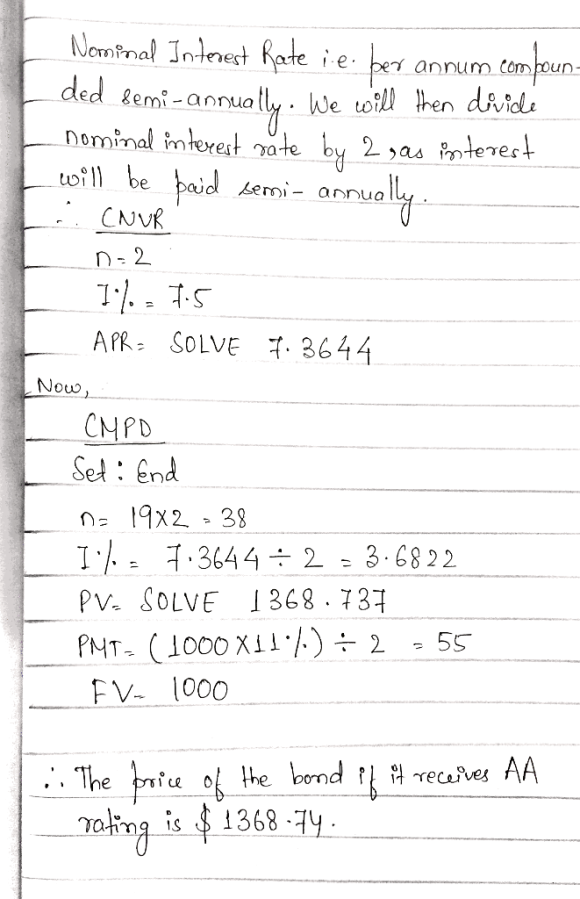 Nominal Interest Rate i.e. per annum compoun-
ded semi-annually. We will then divide
nominal interest rate by 2, as interest
will be paid semi-annually.
∴ CNVR
n = 2
I% = 7.5
APR = SOLVE 7.3644
Now,
CMPD
Set : End
n = 19X2 = 38
I% = 7.3644 ÷ 2 = 3.6822
PV = SOLVE 1368.737
PMT = (1000 X11%) ÷ 2 = 55
FV = 1000
∴ The price of the bond if it receives AA
rating is $ 1368.74.